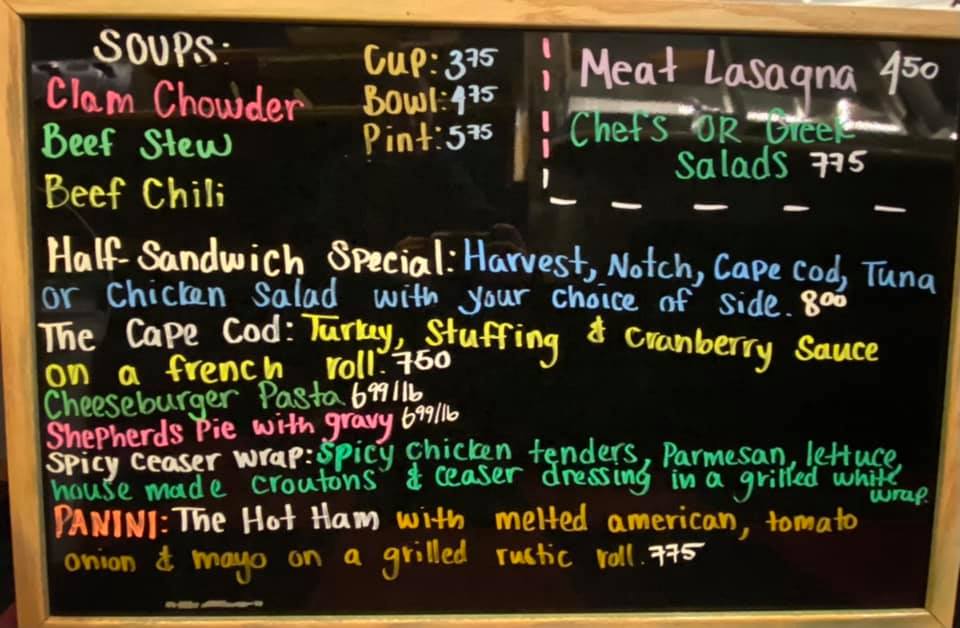 SOUPS:
Clam Chowder
Beef Stew
Beef Chili
Cup: 375
Bowl: 475
Pint: 575
Meat Lasagna 450
Chefs OR Greek
Salads 775
Half-Sandwich Special: Harvest, Notch, Cape Cod, Tuna
or Chicken Salad with your choice of side. 800
The Cape Cod: Turkey, Stuffing & Cranberry Sauce
on a french roll. 750
Cheeseburger Pasta 699/lb
Shepherds Pie with gravy 699/lb
Spicy Ceaser Wrap: Spicy chicken tenders, Parmesan, lettuce,
house made croutons & ceaser dressing in a grilled white
wrap.
PANINI: The Hot Ham with melted american, tomato
onion & mayo on a grilled rustic roll. 775